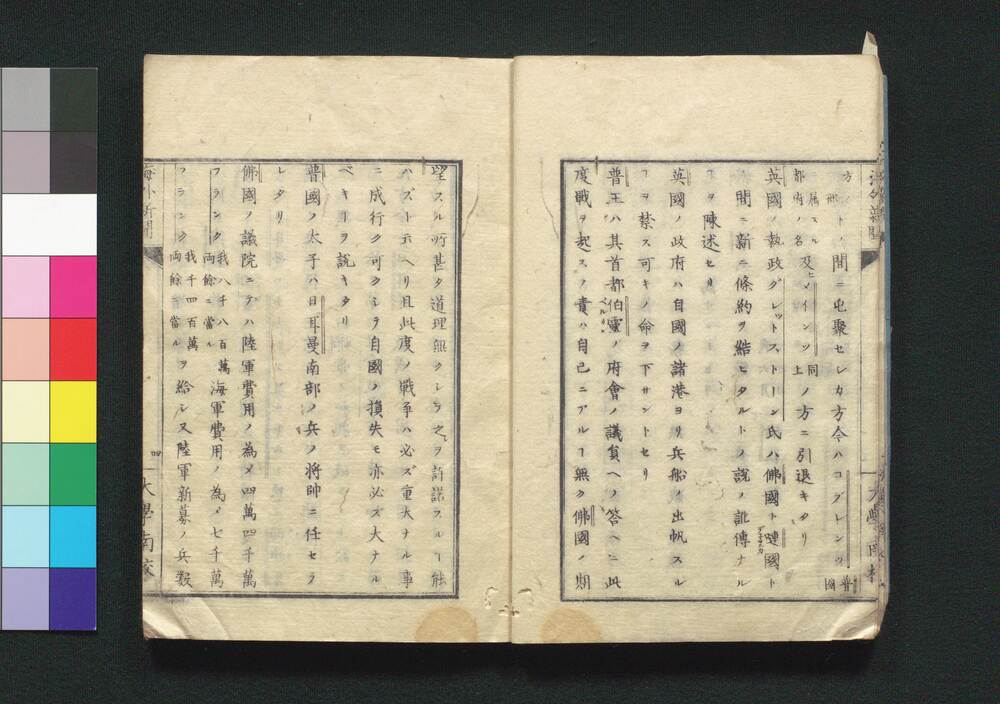 ノ間ニ屯聚セレカ方今ハコブレンツ 普國
ニ屬スル都府ノ名及ヒメインツ同上ノ方ニ引退キタリ
英國ノ執政グレットストーン氏ハ佛國ト嗹國ト
ノ間ニ新ニ條約ヲ結ヒタルトノ説ノ訛傳ナル
ヿヲ陳述セリ
英國ノ政府ハ自國ノ諸港ヨリ兵船ノ出帆スル
ヿヲ禁ス可キノ命ヲ下サントセリ
普王ハ其首都伯靈ノ府會ノ議員ヘノ答ヘニ此
度戰ヲ起スノ責ハ自己ニアルヿ無ク佛國ノ期
望スル所甚タ道理無クシテ之ヲ許諾スルヿ能
ハズト云ヘリ且此度ノ戰爭ハ必ズ重大ナル事
ニ成行ク可クシテ自國ノ損失モ亦必ズ大ナル
ベキヿヲ説キタリ
普國ノ太子ハ日耳曼南部ノ兵ノ將帥ニ任セラ
レタリ
佛國ノ議院ニテハ陸軍費用ノ為メ四萬四千萬
フランク 我八千八百萬兩餘ニ當ル 海軍費用ノ為メ七千萬
フランク 我千四百萬兩餘ニ當ル ヲ給シ又陸軍新募ノ兵數
海外新聞
四
大學南校